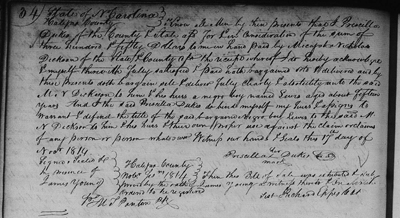 34) State of N Carolina
Halifax County } Know all Men by these presents that I Priscilla
Dukes of the County & State afs for & in Consideration of the sum of
three hundred & fifty Dollars to me in hand paid by
Dickson of the State & County afs the receipt whereof I do hereby acknowledge
myself therewith fully satisfied & paid hath bargained sold & delivered and by
these presents doth bargain sell & deliver fully clearly & absolutely unto the said
M. N Dickson to him & his heirs a negro boy named Lewis aged about fifteen
Years And I the said Priscilla Dukes do bind myself my heirs & assigns to
Warrant & defend the title of the said bargained Negro boy Lewis to the said M.
N Dickson to him & his heirs & their own proper use against the claim or claims
of any person or persons whatsoever Witness my hand & Seal this 17th day of
Novr 1814
Signed Sealed &c Priscilla her Dukes
in presence of mark
James Young
Halifax County
Novr 1814 } Then this Bill of Sale was exhibited &
proved by the oath of James Young & on motion
ordered to be registered